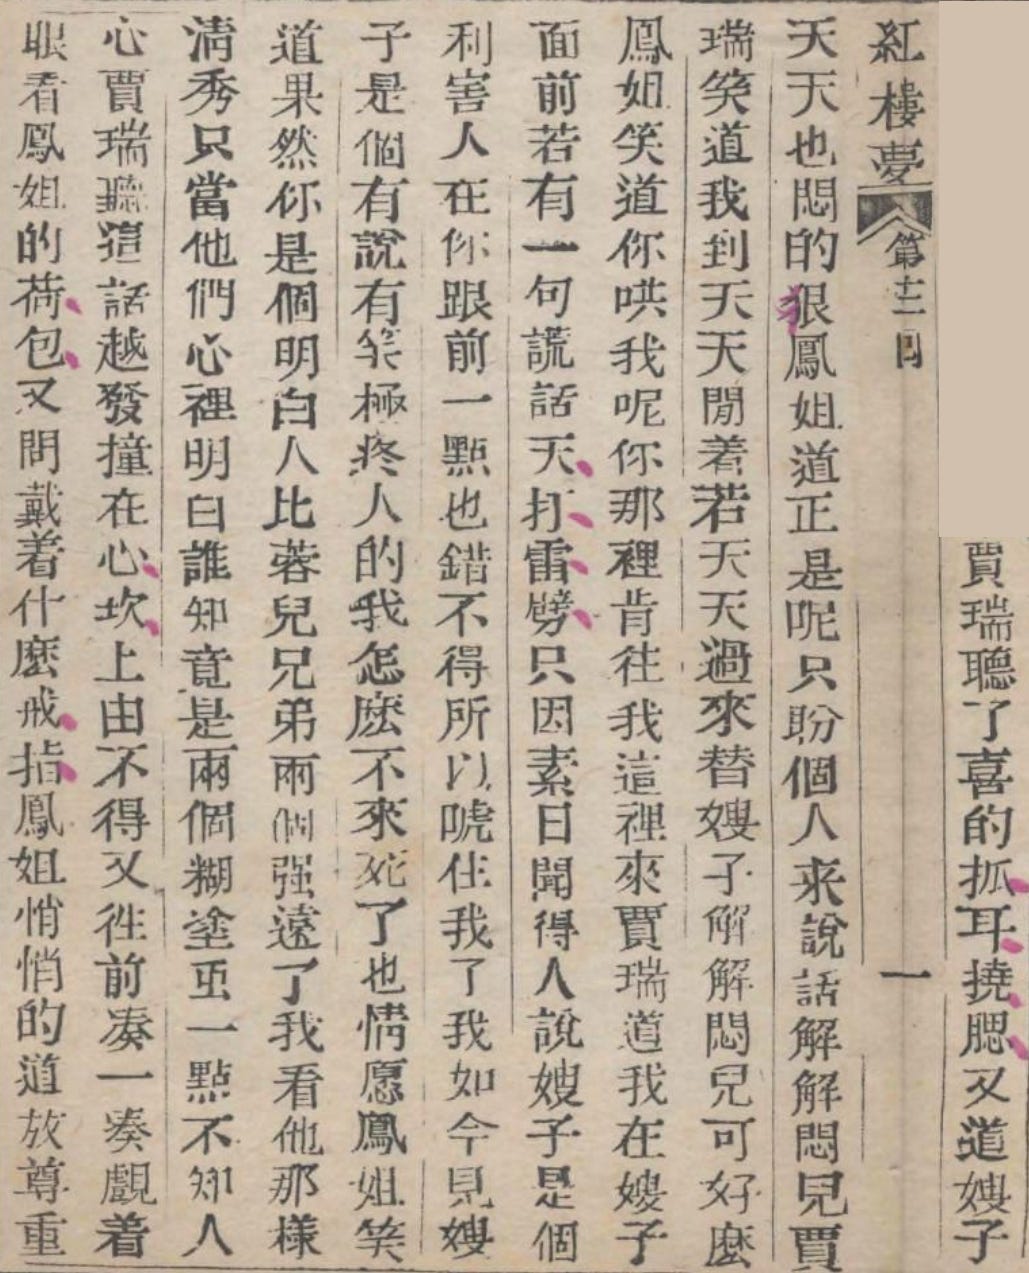 賈瑞聽了喜的抓耳撓腮又道嫂子
紅樓夢 第十二回 一
天天也悶的狠鳳姐道正是呢只盼個人来說話解解悶兒賈
瑞笑道我到天天閒着若天天過來替嫂子解解悶兒可好麽
鳳姐笑道你哄我呢你那裡肯往我這裡來賈瑞道我在嫂子
面前若有一句謊話天打雷劈只因素日聞得人說嫂子是個
利害人在你跟前一點也錯不得所以唬住我了我如今見嫂
子是個有說有笑極疼人的我怎麽不來死了也情愿鳳姐笑
道果然你是個明白人比蓉兒兄弟兩個强遠了我看他那樣
清秀只當他們心裡明白誰知竟是兩個糊塗虫一點不知人
心賈瑞聽這話越發撞在心坎上由不得又徃前凑一凑覷着
眼看鳳姐的荷包又問戴着什麽戒指鳳姐悄悄的道放尊重